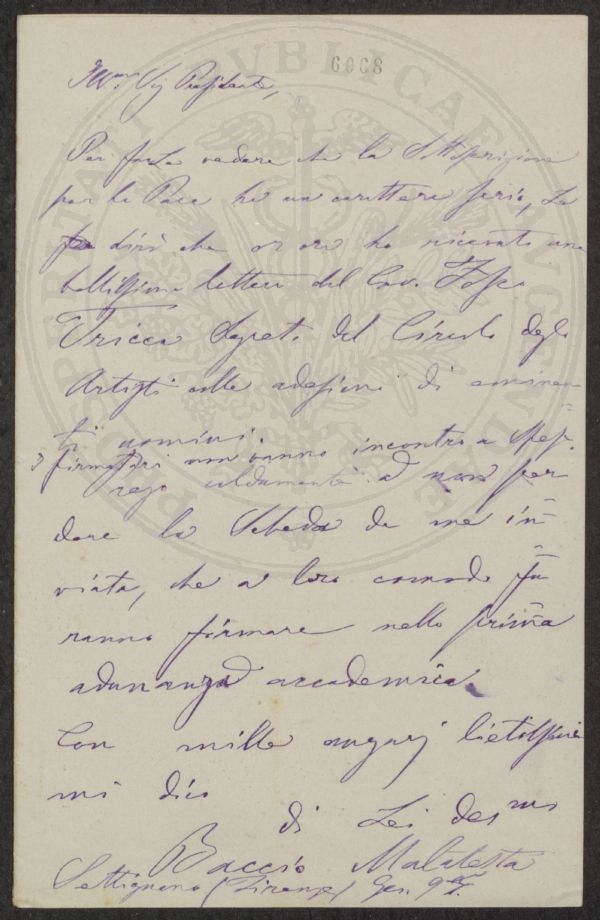 6068
Illmo Sig Presidente,
Per farLe vedere che la Sottoscrizione
per la Pace ha un carattere serio, Le
dirò che or ora ho ricevuto una
bellissima lettera del Cav.
Tricca Segret. del Circolo degli
Artisti colle adesioni di eminen-
ti uomini.
I firmatari non vanno incontro a spese.
rego caldamente a non per
dere la Scheda da me in-
viata, che a loro comodo fa-
ranno firmare nella prima
adunanza accademica.
Con mille augurj lietissimi
mi dico
di Lei devmo
Baccio Malatesta
Settignano (Firenze) Gen
PROSPERITATI PUBLICAE AUGENDAE